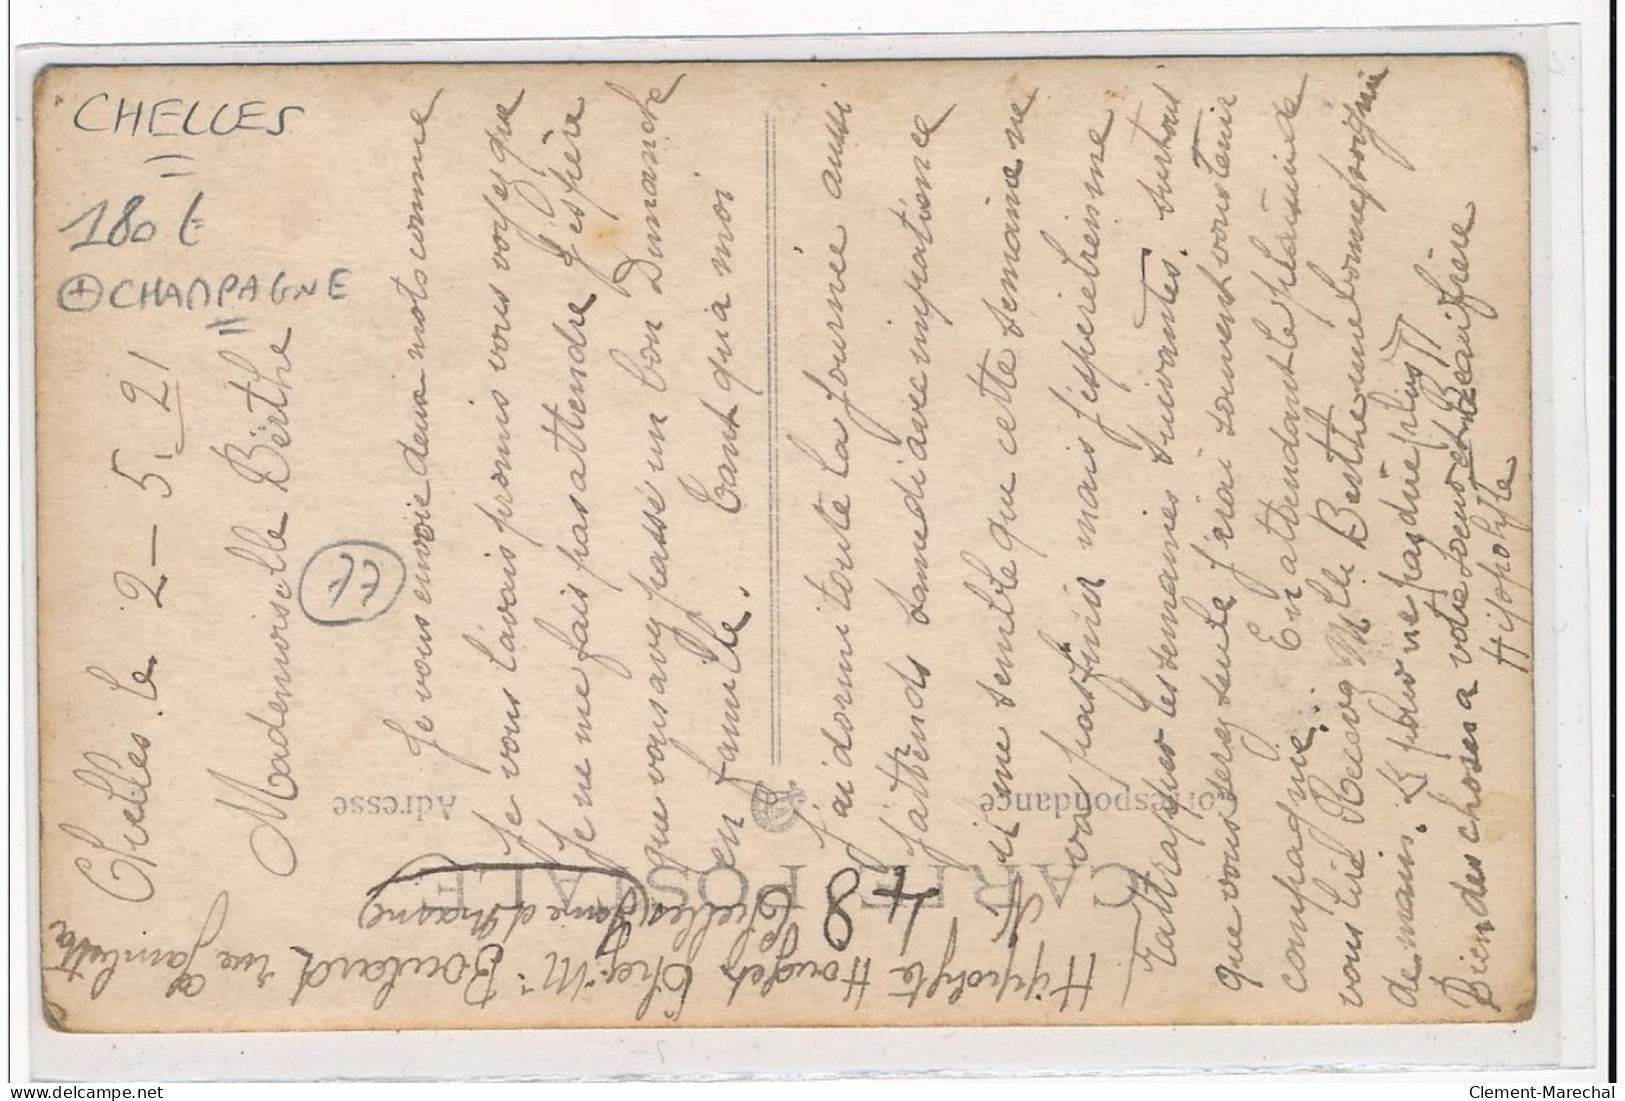 CHELLES
180 €
+ CHAMPAGNE
77
Chelles le 2 - 5. 21
Mademoiselle Berthe
Je vous envoie deux mots comme
Je vous l'avais promis vous voyez que
Je ne me fais pas attendre J'espère
que vous avez passé un bon Dimanche
en famille. Tant qu'a moi
J'ai dormi toute la Journée aussi
J'attends samedi avec impatience
il me semble que cette semaine ne
vas pas finir mais J'espere
rattraper les semaines suivantes. surtout
que vous serez seule J'irai souvent vous tenir
compagnie. En attendant le plaisir de
vous lire Recevez Mlle Berthe une bonne poignée
de mains. pour ne pas dire plus
Bien des choses a votre soeur et Beau frère
Hippolyte
CARTE POSTALE
Correspondance
Adresse
48
Hippolyte
Chez Mr Boulard rue Gambetta
Chelles (Seine et Marne)
Clement-Marechal
www.delcampe.net